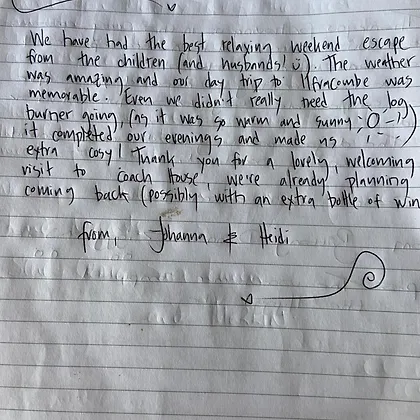 We have had the best relaxing weekend escape
from the children (and husbands! ü). The weather
was amazing and our day trip to Ilfracombe was
memorable. Even we didn't really need the log
burner going, (as it was so warm and sunny,
it completed our evenings and made us
extra cosy! Thank you for a lovely, welcoming
visit to Coach House, we're already planning
coming back (possibly with an extra bottle of win
from, Johanna & Heidi